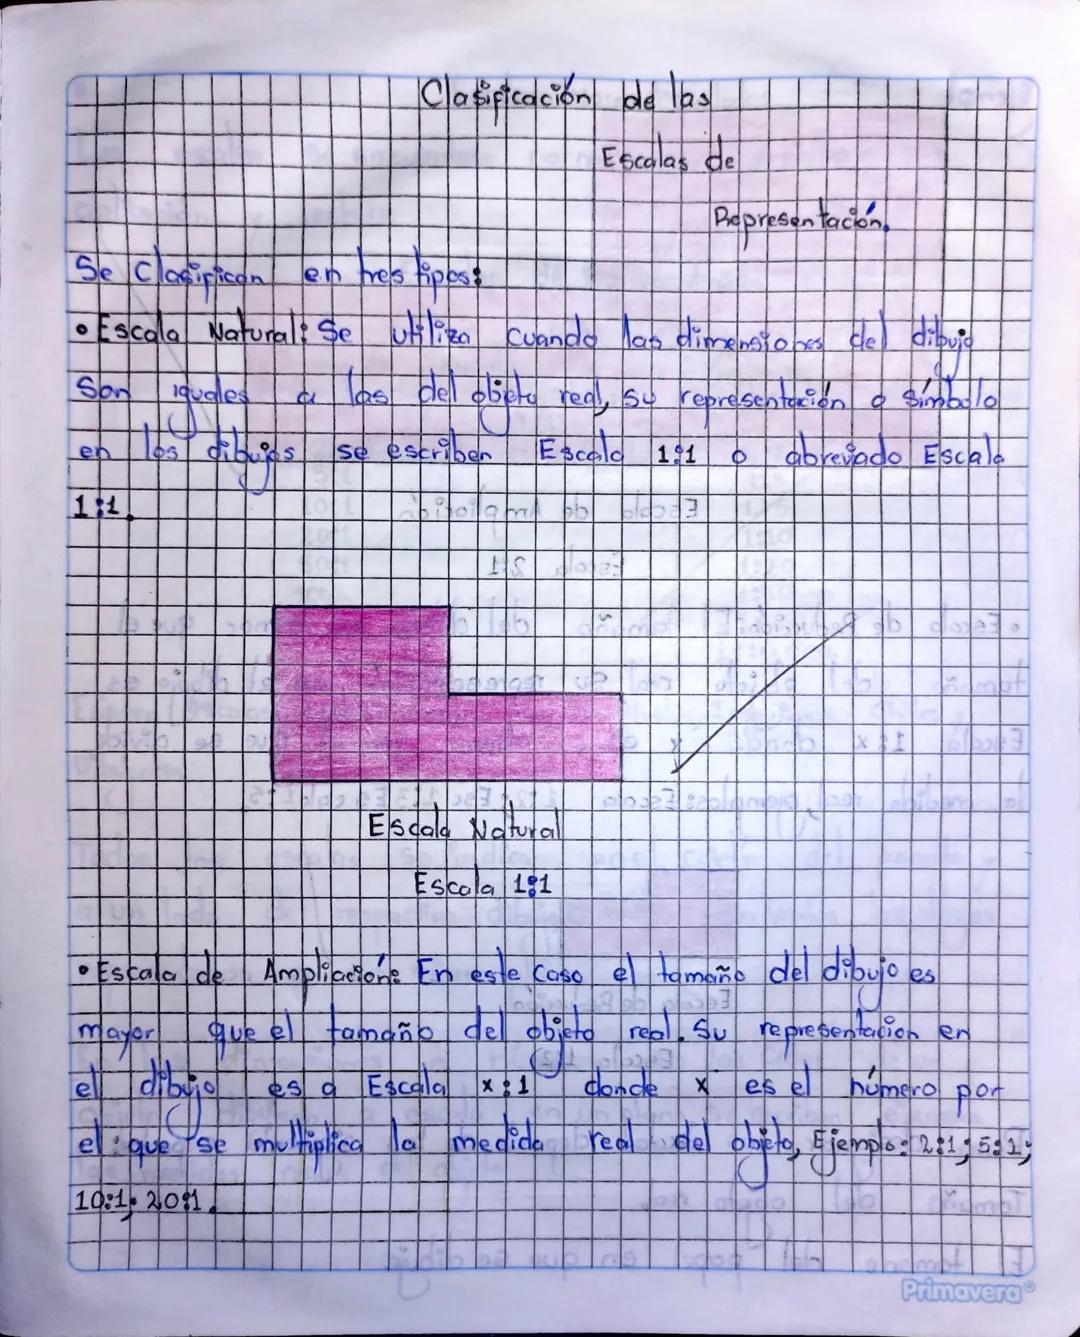 Clasificación de las
Escalas de
Representación.
Se Clasifican en tres tipos:
• Escala Natural: Se utiliza cuando las dimensiones del dibujo
Son iguales a las del objeto real, su representación o símbolo
en los dibujos se escriben Escala 1:1 o abreviado Escala
1:1.
Escala Natural
Escala 1:1
• Escala de Ampliación: En este caso el tamaño del dibujo es
mayor que el tamaño del objeto real. Su representación en
el dibujo es a Escala x:1 donde x es el número por
el que se multiplica la medida real del objeto, Ejemplo: 2:1; 5:1;
10:1; 20:1.
Primavera